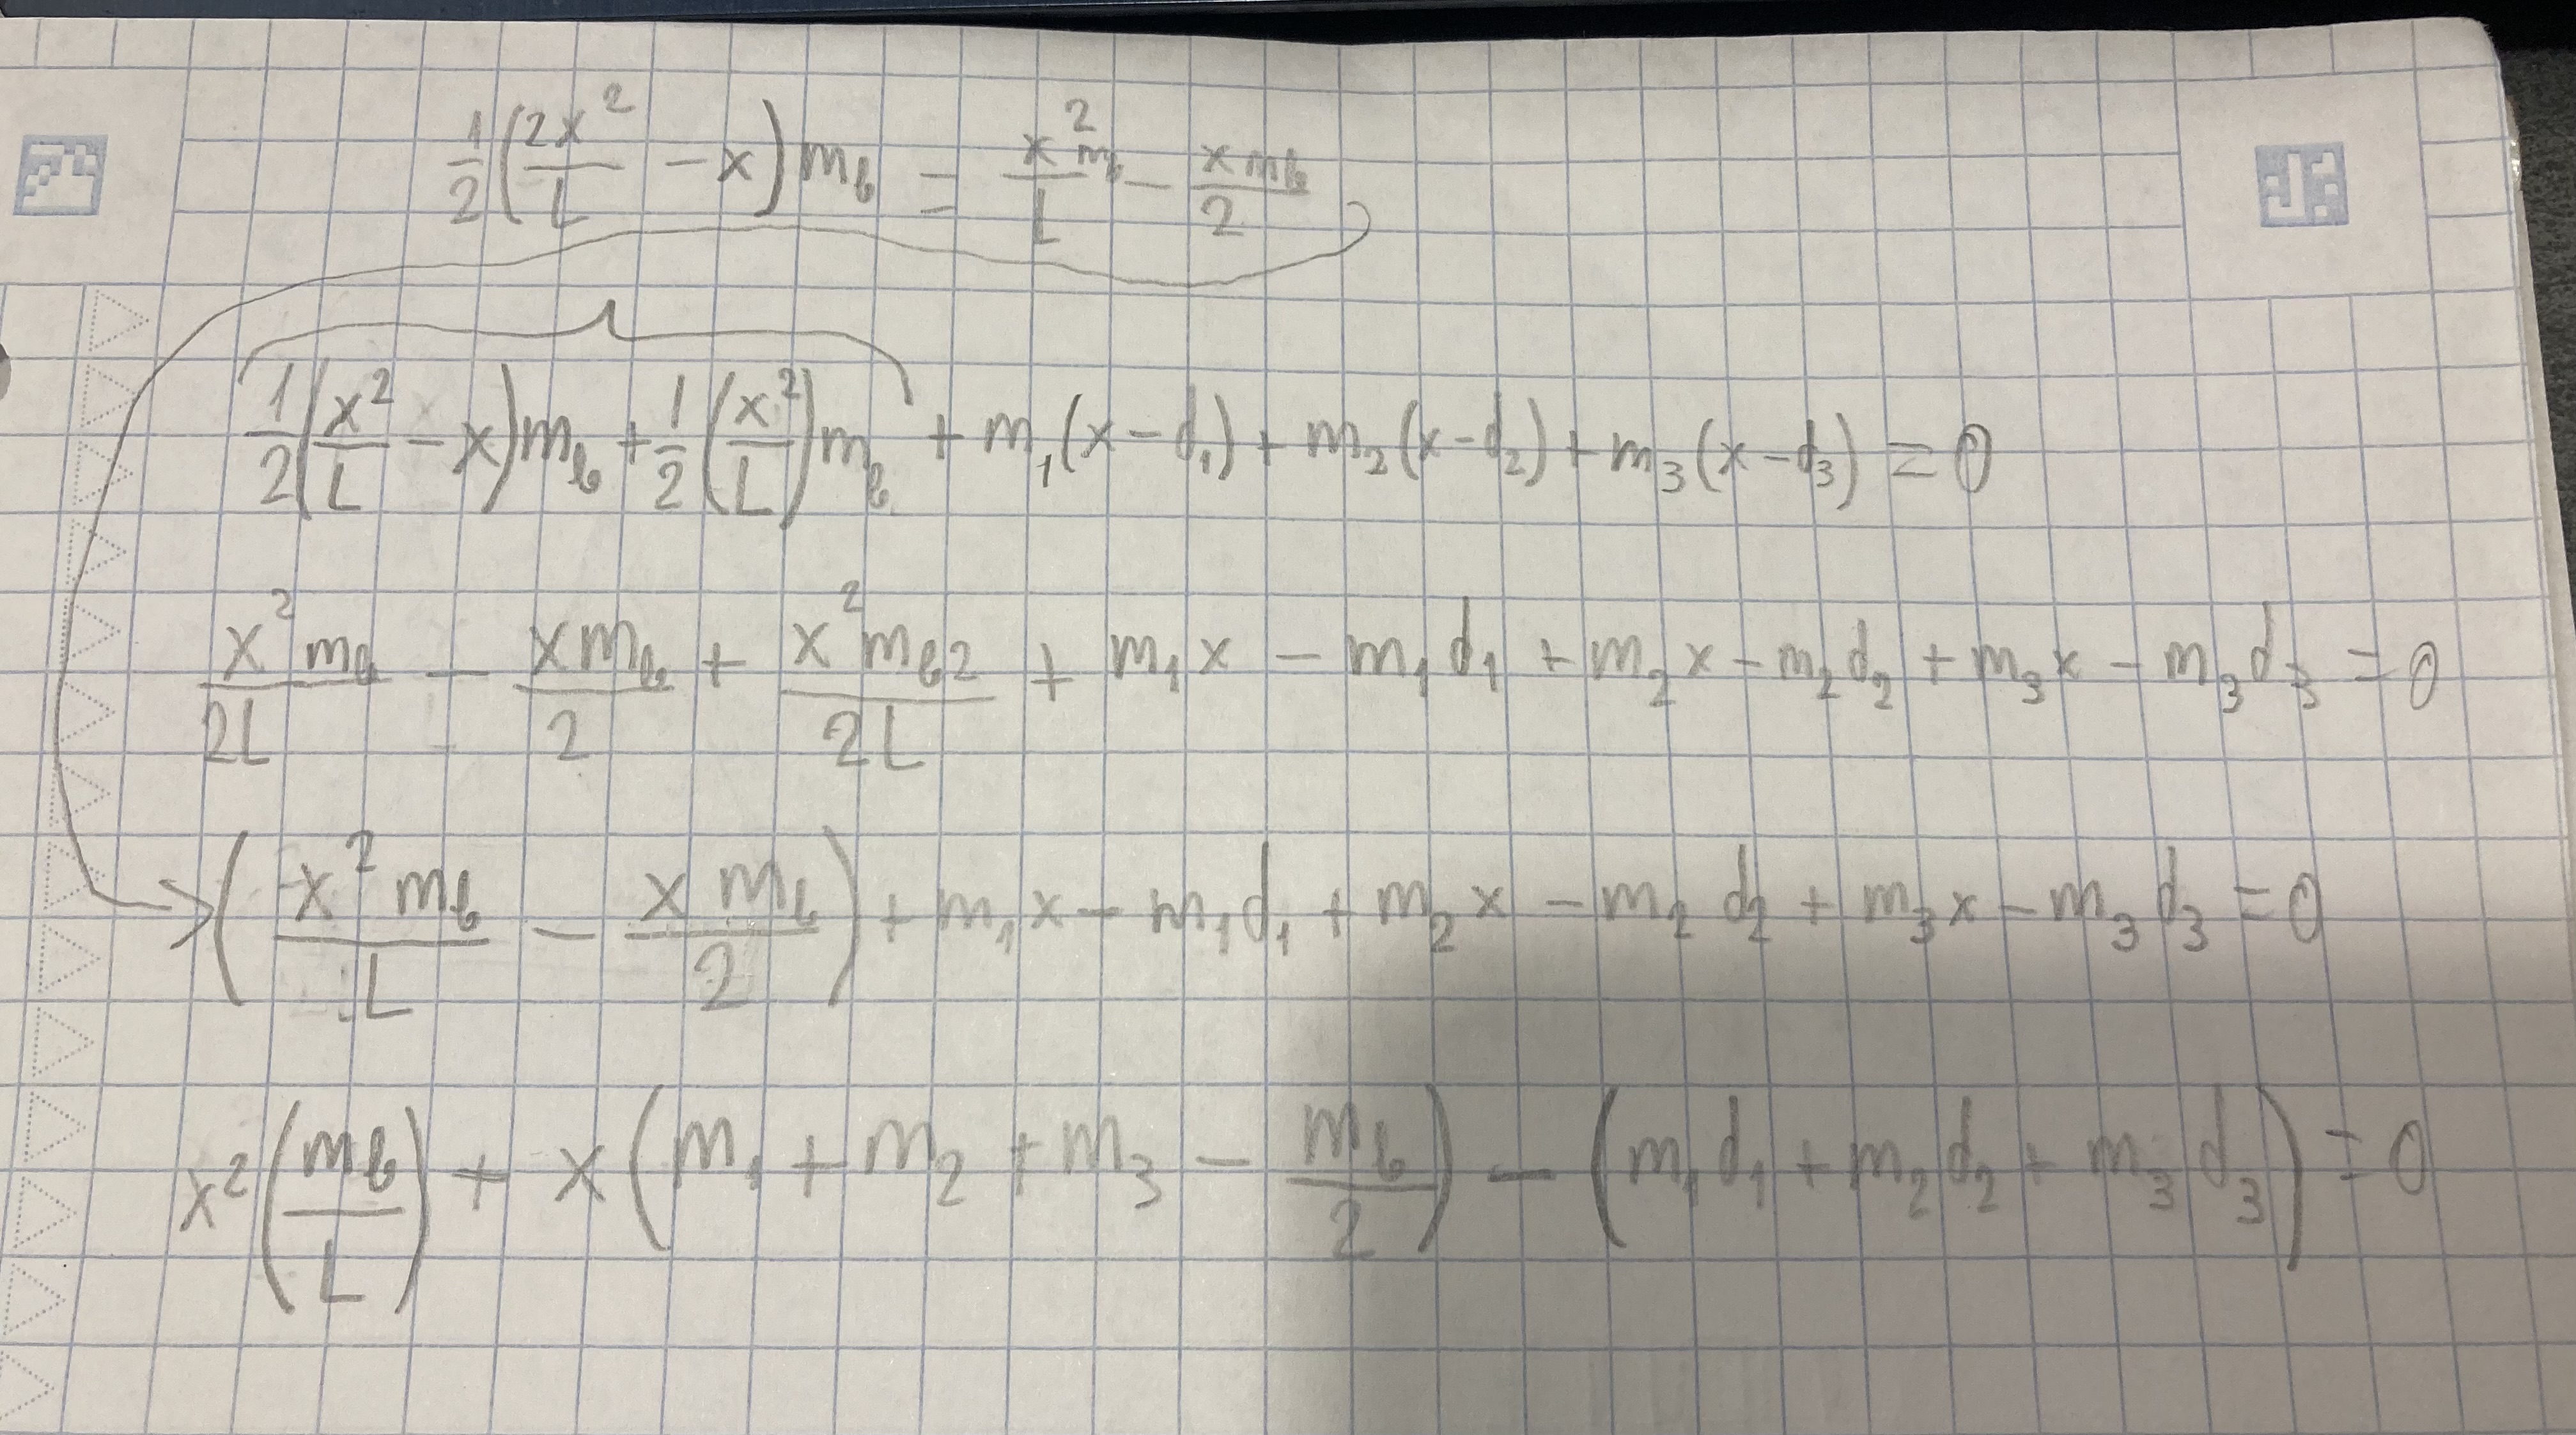 1/2 (2x²/L - x) m_b = x² m_b/L - x m_b/2
1/2 (x²/L - x) m_b + 1/2 (x²/L) m_b + m₁(x - d₁) + m₂(x - d₂) + m₃(x - d₃) = 0
x² m_b/2L - x m_b/2 + x² m_b2/2L + m₁x - m₁d₁ + m₂x - m₂d₂ + m₃x - m₃d₃ = 0
(x² m_b/L - x m_b/2) + m₁x - m₁d₁ + m₂x - m₂d₂ + m₃x - m₃d₃ = 0
x² (m_b/L) + x (m₁ + m₂ + m₃ - m_b/2) - (m₁d₁ + m₂d₂ + m₃d₃) = 0